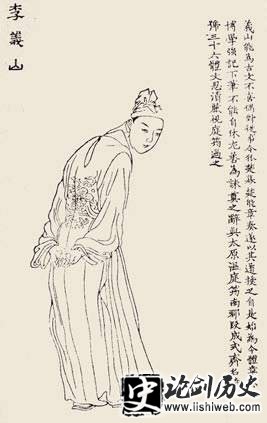 義山能為古文不喜偶對從事令狐楚幕楚能章奏遂以其道授之自是始為今體章
博學強記下筆不能自休尤善為誄奠之辭與太原溫庭筠南郡段成式齊名
號三十六體文思清麗視庭筠過之
李義山
史 论剑历史
www.lishiweb.com